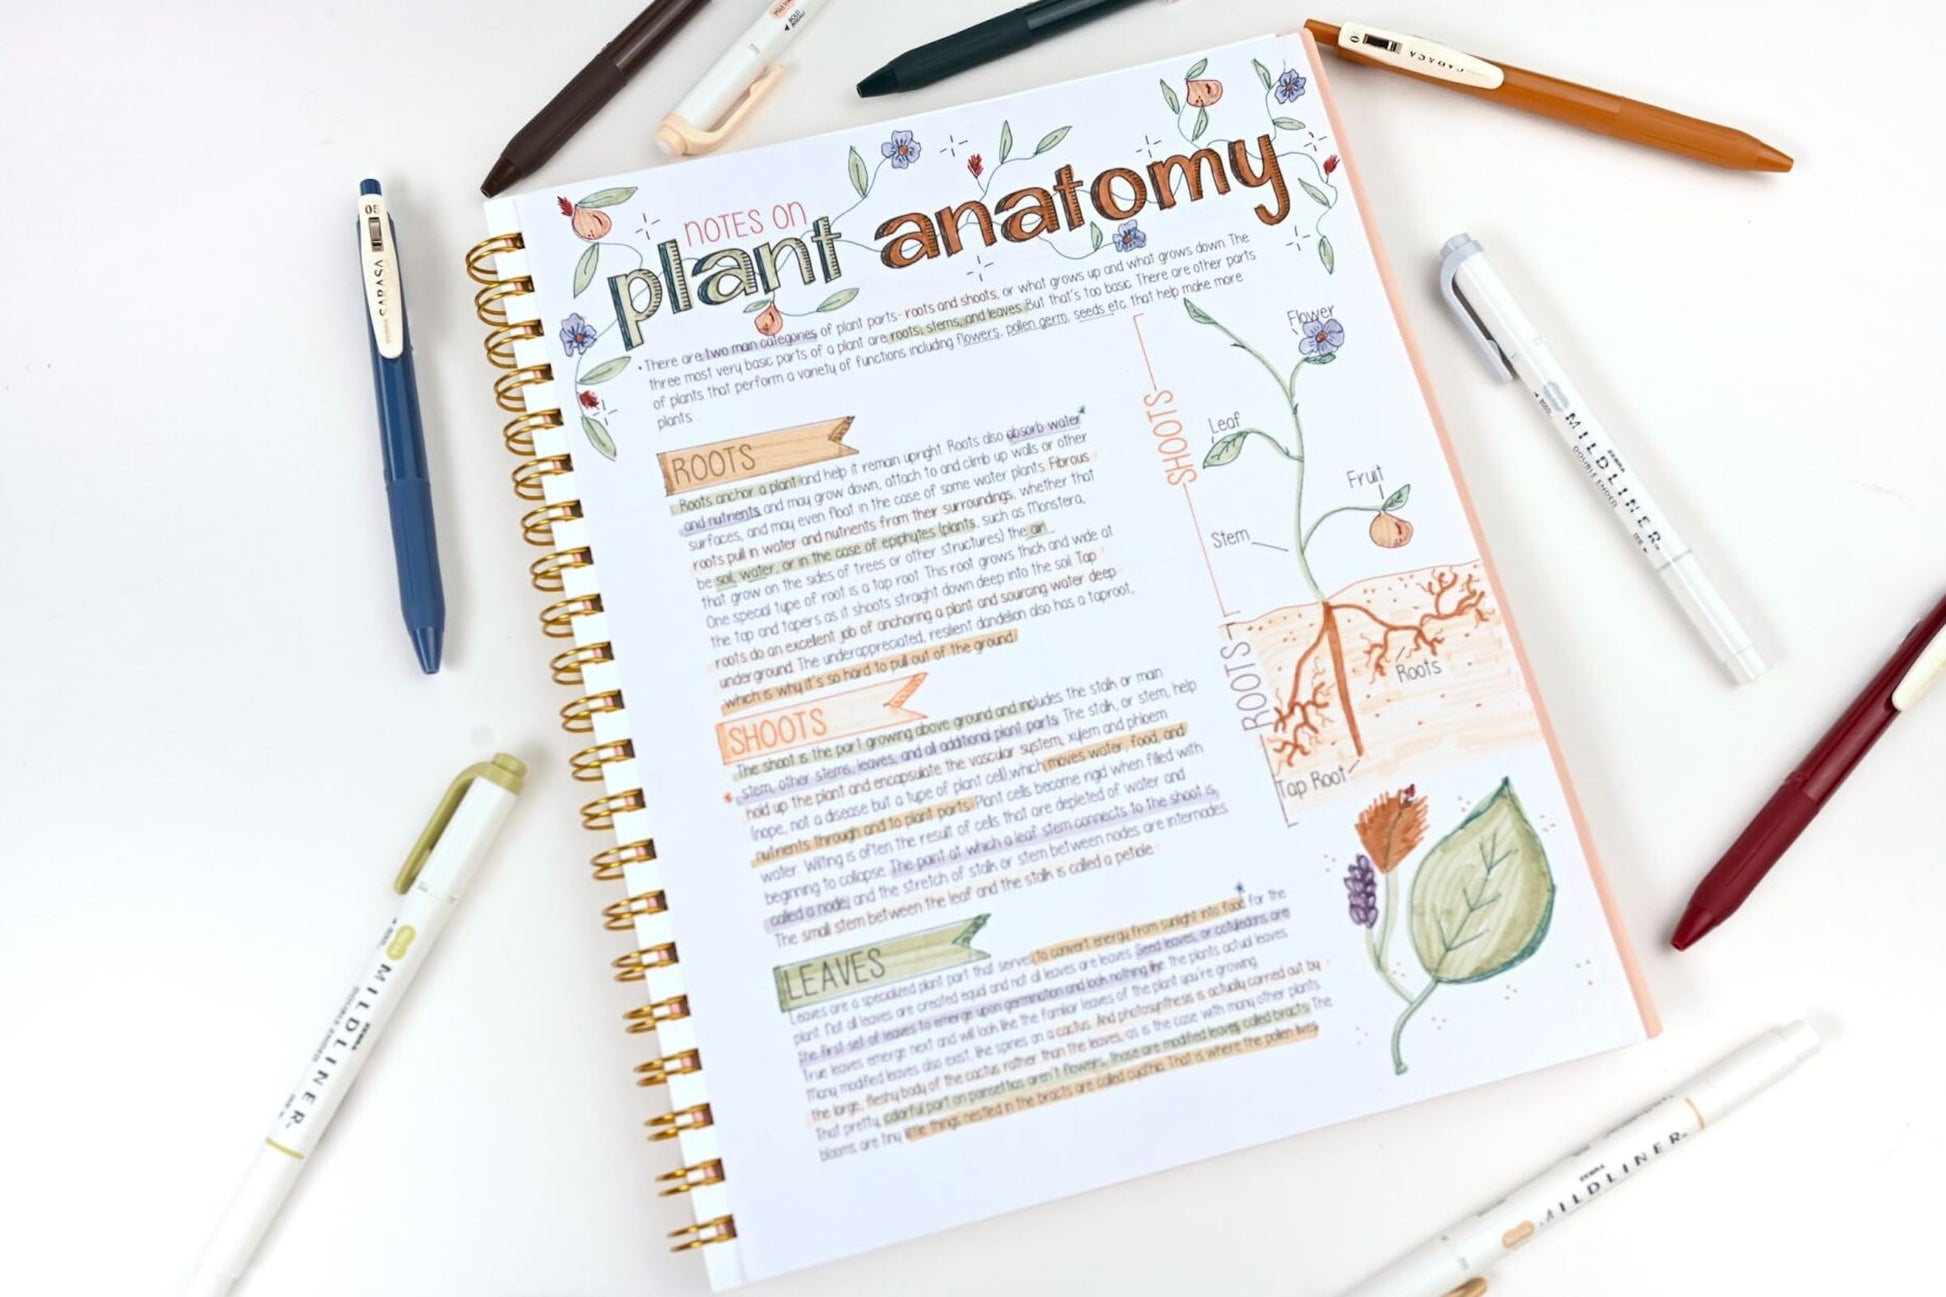 NOTES ON
plant anatomy
• There are two main categories of plant parts- roots and shoots, or what grows up and what grows down. The
three most very basic parts of a plant are roots, stems, and leaves. But that's too basic. There are other parts
of plants that perform a variety of functions including flowers, pollen germ, seeds etc that help make more
plants.
ROOTS
Roots anchor a plant and help it remain upright. Roots also absorb water*
and nutrients and may grow down, attach to and climb up walls or other
surfaces, and may even float in the case of some water plants. Fibrous
roots pull in water and nutrients from their surroundings, whether that
be soil, water, or in the case of epiphytes (plants, such as Monstera,
that grow on the sides of trees or other structures) the air.
One special type of root is a tap root. This root grows thick and wide at
the top and tapers as it shoots straight down deep into the soil. Tap
roots do an excellent job of anchoring a plant and sourcing water deep
underground. The underappreciated, resilient dandelion also has a taproot,
which is why it's so hard to pull out of the ground!
SHOOTS
The shoot is the part growing above ground and includes the stalk or main
* stem, other stems, leaves, and all additional plant parts. The stalk, or stem, help
hold up the plant and encapsulate the vascular system, xylem and phloem
(nope, not a disease but a type of plant cell), which moves water, food, and
nutrients through and to plant parts. Plant cells become rigid when filled with
water. Wilting is often the result of cells that are depleted of water and
beginning to collapse. The point at which a leaf stem connects to the shoot is
called a node, and the stretch of stalk or stem between nodes are internodes.
The small stem between the leaf and the stalk is called a petiole.
LEAVES
Leaves are a specialized plant part that serves to convert energy from sunlight into food* for the
plant. Not all leaves are created equal and not all leaves are leaves. Seed leaves, or cotyledons are
the first set of leaves to emerge upon germination and look nothing like the plants actual leaves.
True leaves emerge next and will look like the familiar leaves of the plant you're growing.
Many modified leaves also exist, like spines on a cactus. And photosynthesis is actually carried out by
the large, fleshy body of the cactus rather than the leaves, as is the case with many other plants.
That pretty, colorful part on poinsettias aren't flowers, those are modified leaves called bracts! The
blooms are tiny little things nestled in the bracts are called cyathia. That is where the pollen lives.
SHOOTS
Flower
Leaf
Fruit
Stem
ROOTS
Roots
Tap Root
SARASA
05
SARASA
ZEBRA
MILDLINER
DOUBLE ENDED
ZEBRA
MILDLINER
DOUBLE ENDED
ZEBRA
MILDLINER